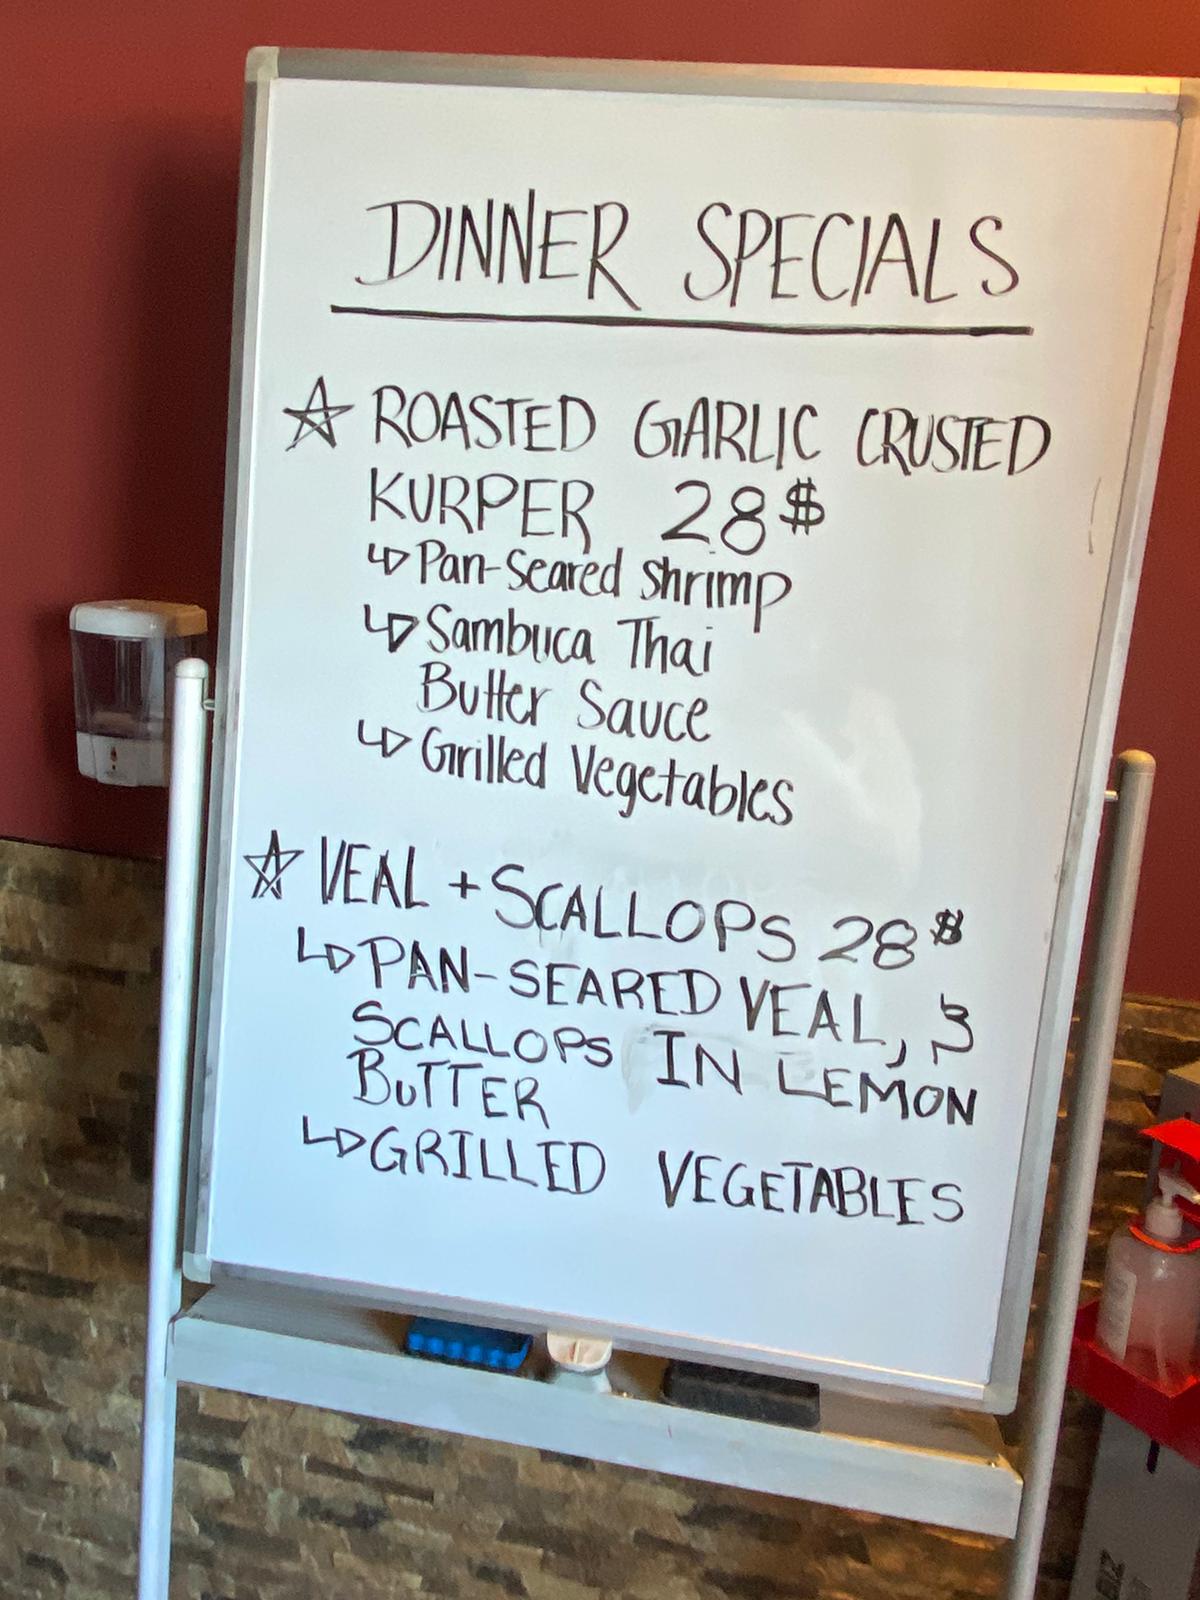 DINNER SPECIALS
☆ ROASTED GARLIC CRUSTED
KURPER 28$
↳ Pan-Seared Shrimp
↳ Sambuca Thai
Butter Sauce
↳ Grilled Vegetables
☆ VEAL + SCALLOPS 28$
↳ PAN-SEARED VEAL, &
SCALLOPS IN LEMON
BUTTER
↳ GRILLED VEGETABLES